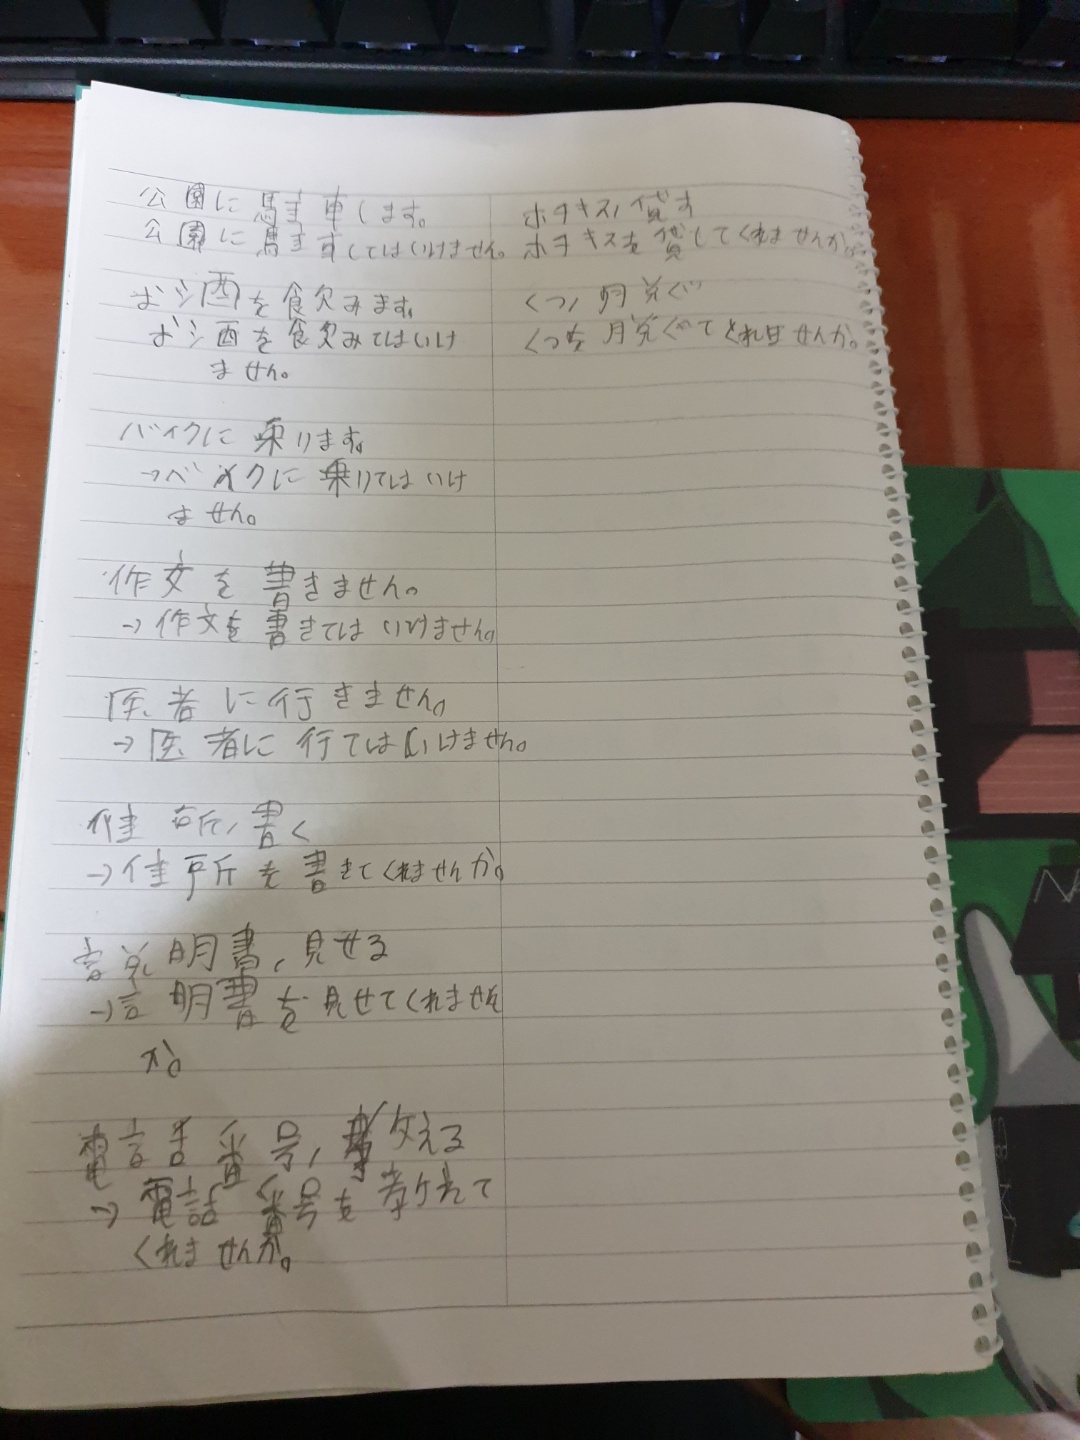 公園に駐車します。
公園に駐車してはいけません。
お酒を飲みます。
お酒を飲みてはいけ
ません。
バイクに乗ります。
→バイクに乗りてはいけ
ません。
作文を書きません。
→作文を書きてはいけません。
医者に行きません。
→医者に行てはいけません。
住所,書く
→住所を書きてくれませんか。
説明書,見せる
→説明書を見せてくれません
か。
電話番号,教える
→電話番号を教れて
くれませんか。
ホチキス,貸す
ホチキスを貸してくれませんか。
くつ,脱ぐ
くつを脱ぐてくれませんか。